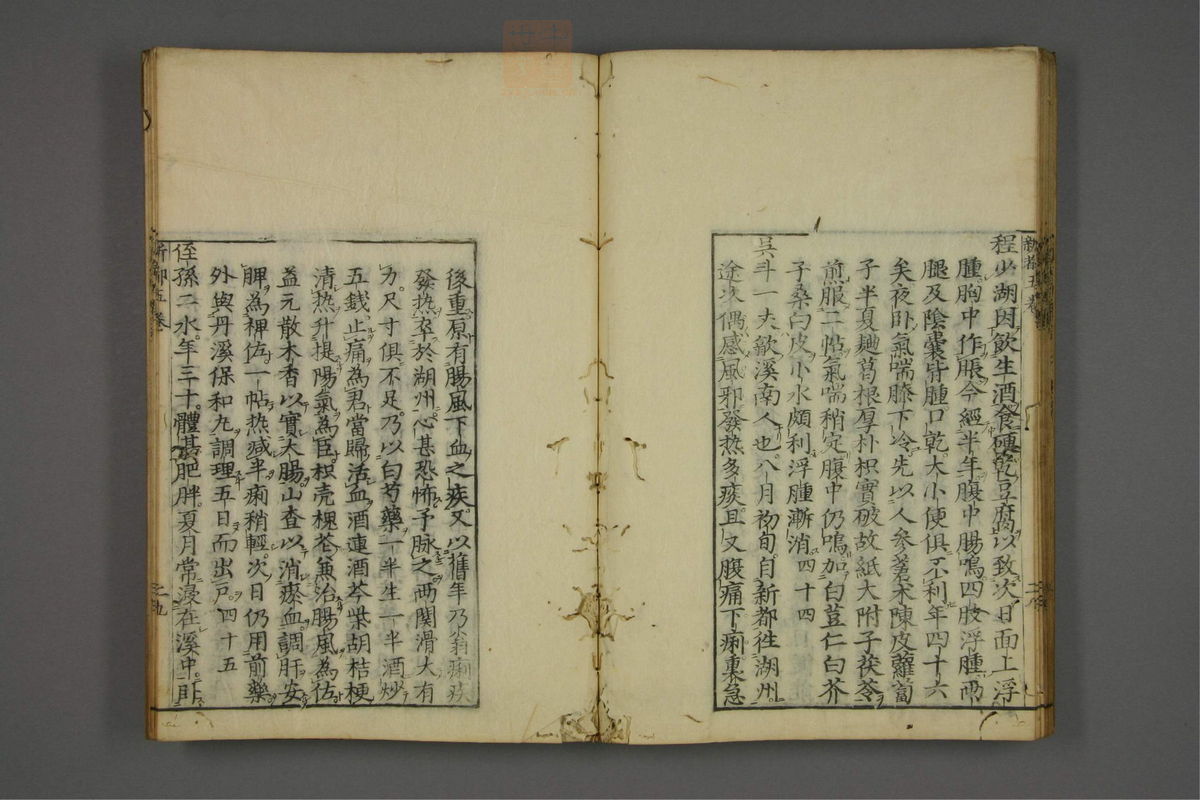 程少湖因飲生酒食磚乾豆腐以致次日面上浮
腫胸中作脹今經半年腹中腸鳴四肢浮腫兩
腿及陰囊皆腫口乾大小便俱不利年四十六
矣夜卧氣喘膝下冷先以人参蒼术陳皮蘿蔔
子半夏麯葛根厚朴枳實破故紙大附子茯苓
煎服二帖氣喘稍定腹中仍鳴加白荳仁白芥
子桑白皮小水頗利浮腫漸消四十四
吳斗一大歙溪南人也八月初旬自新都徃湖州
途次偶感風邪發热多痰且又腹痛下痢裏急
新都五卷
後重原有腸風下血之疾又以舊年乃翁痢疾
發热卒於湖州心甚恐怖予脉之两関滑大有
力尺寸俱不足乃以白芍藥一半生一半酒炒
五錢止痛為君當歸活血酒連酒芩柴胡桔梗
清热升提陽氣為臣枳壳槐花兼治腸風為佐
益元散木香以實大腸山查以消瘀血調肝安
脾為裨佐一帖热減半痢稍輕次日仍用前藥
外與丹溪保和丸調理五日而出戶四十五
侄孫二水年三十體甚肥胖夏月常浸在溪中卧